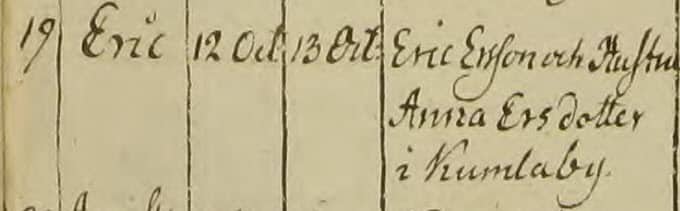 19 Eric 12 Oct: 13 Oct: Eric Ersson och Hustru
Anna Ersdotter
i Kumlaby.